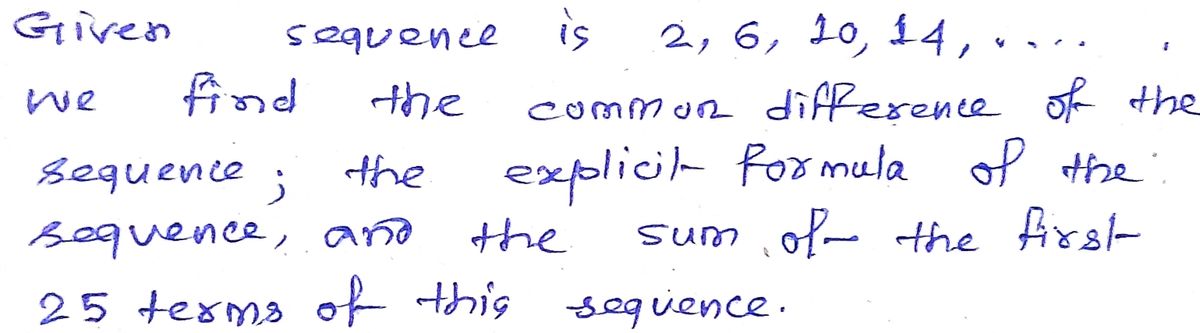 Given sequence is 2, 6, 10, 14, .... .
we find the common difference of the
sequence; the explicit formula of the
sequence, and the sum of the first
25 terms of this sequence.